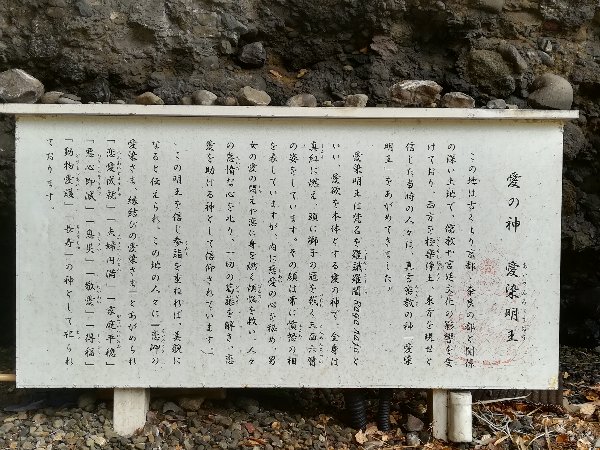 愛の神　愛染明王
あいぜんみょうおう
この地は古くより京都、奈良の都と関係
の深い土地で、儒教や宮廷文化の影響を受
けており、西方を極楽浄土、東方を現世と
信じた当時の人々は、真言密教の神「愛染
明王」をあがめてきました。
愛染明王は梵名を羅誐羅闍Ragarajaと
いい、愛欲を本体とする愛の神で、全身は
真紅に燃え、頭に獅子の冠を戴く三面六臂
の姿をしています。その顔は常に憤怒の相
を表していますが、内に慈愛の心を秘め、男
女の愛の悶えや悪い身を滅ぼす煩悩を救い、人々
の怠惰な心を叱り、一切の葛藤を解き、恋
愛を助ける神として信仰されています。
この明王を信じ参詣を重ねれば、美貌に
なると伝えられ、この地の人々に「恋の
愛染さま、縁結びの愛染さま」とあがめられ
「恋愛成就」「夫婦円満」「家庭平穏」
「悪心即滅」「息災」「敬愛」「得福」
「動物愛護」「長寿」の神として祀られ
ております。